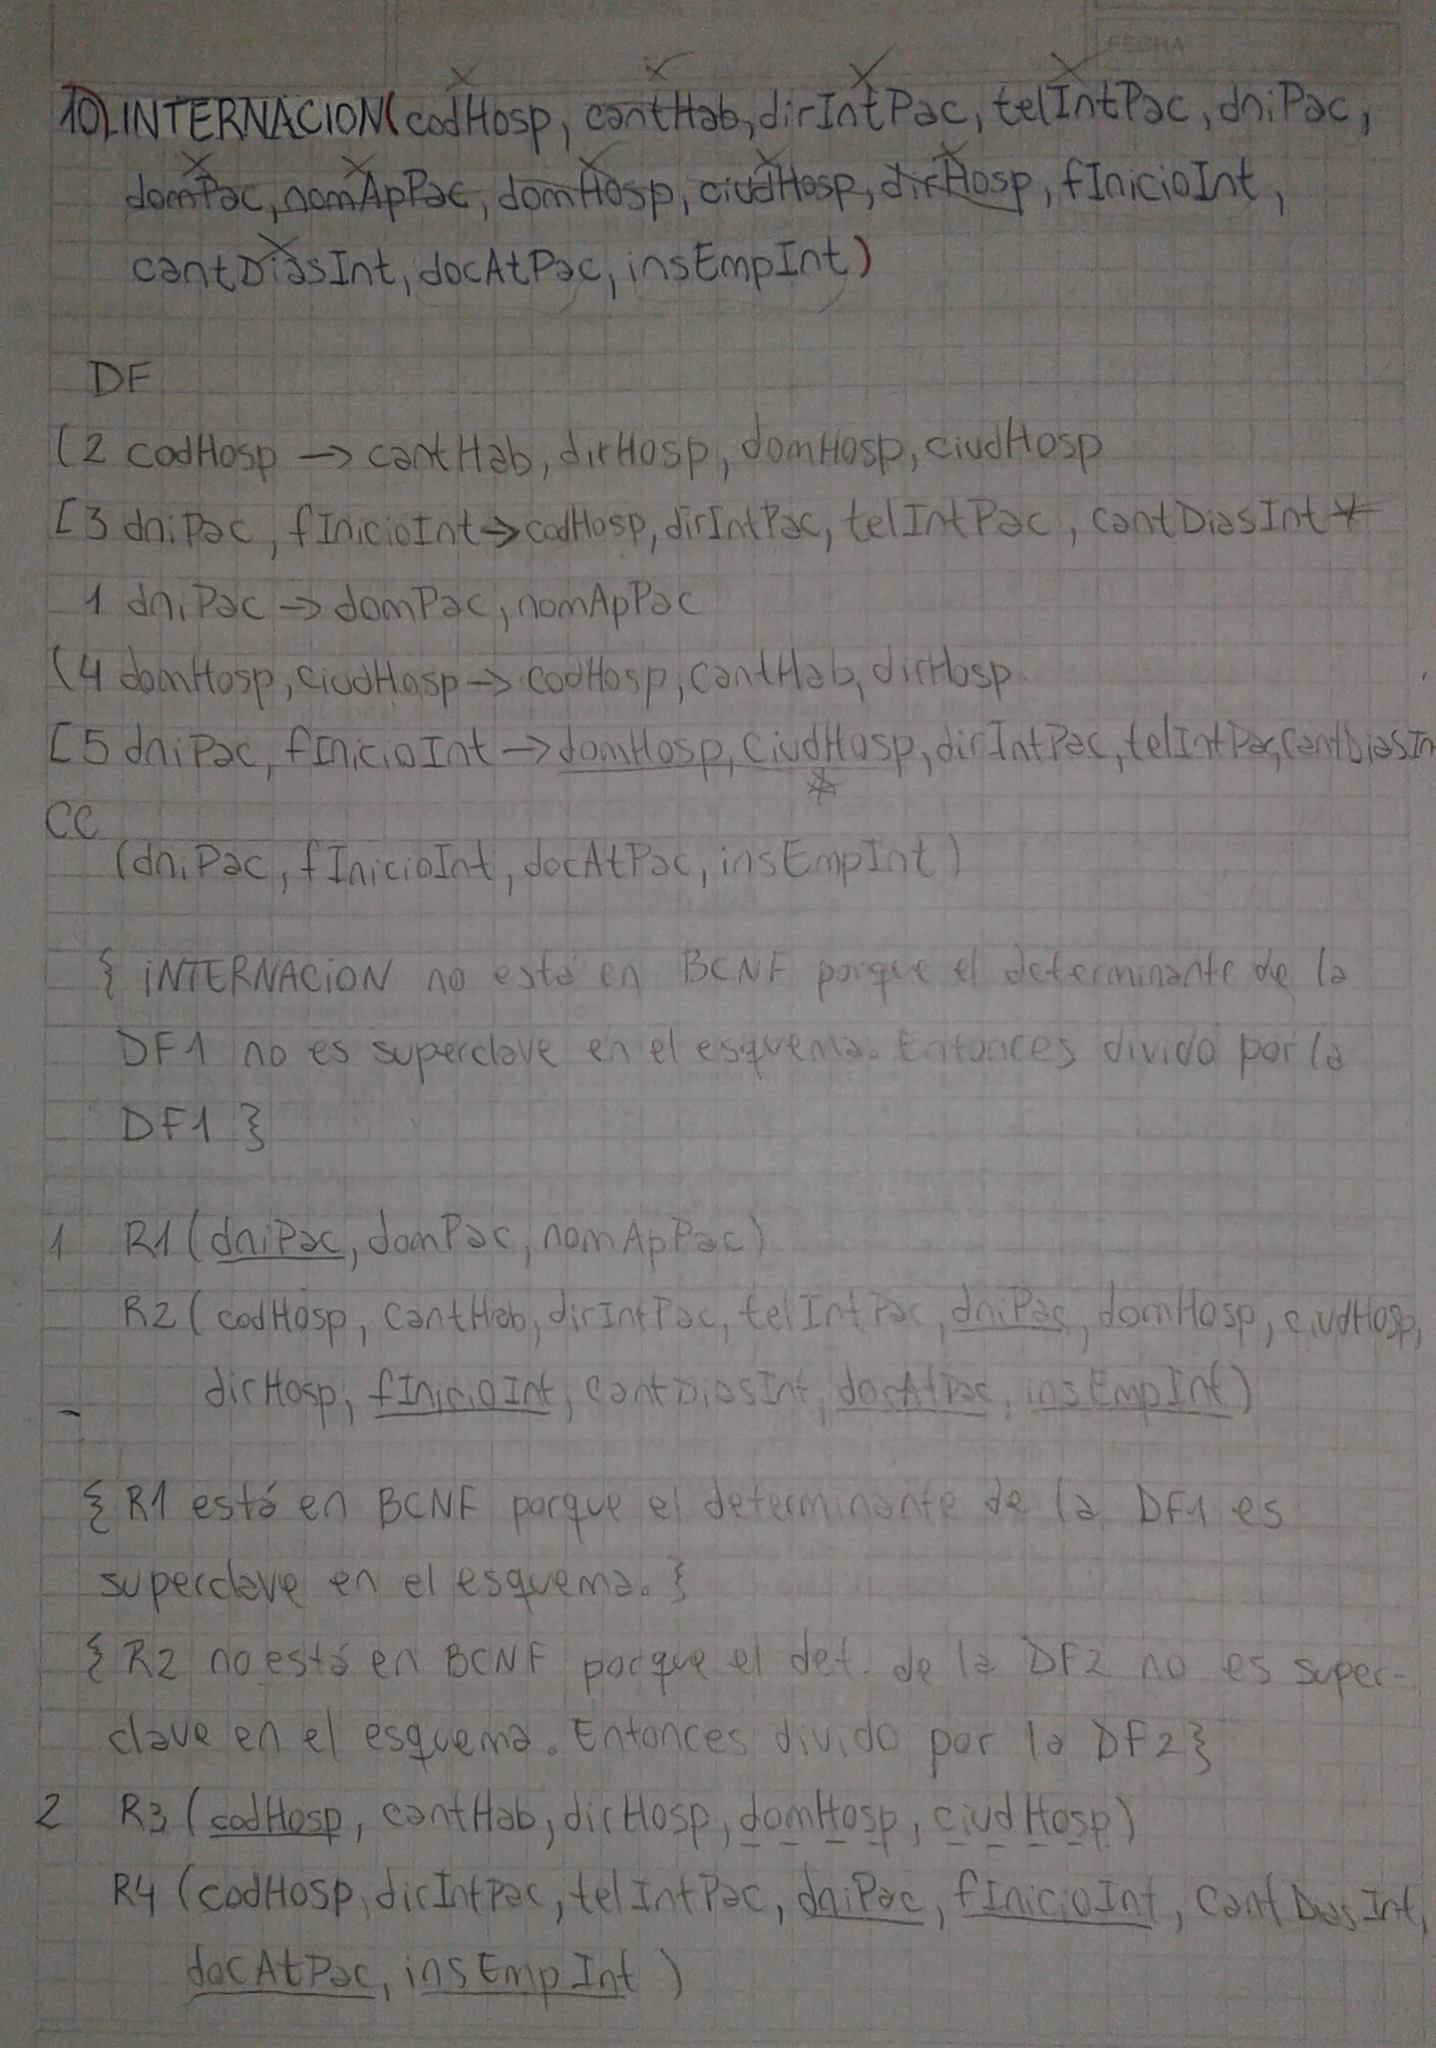 FECHA
10) INTERNACION(codHosp, cantHab, dirIntPac, telIntPac, dniPac,
domPac, nomApPac, domHosp, ciudHosp, dirHosp, fInicioInt,
cantDiasInt, docAtPac, insEmpInt)
DF
(2 codHosp → cantHab, dirHosp, domHosp, ciudHosp
[3 dniPac, fInicioInt → codHosp, dirIntPac, telIntPac, cantDiasInt *
1 dniPac → domPac, nomApPac
(4 domHosp, ciudHosp → codHosp, cantHab, dirHosp
[5 dniPac, fInicioInt → domHosp, ciudHosp, dirIntPac, telIntPac, cantDiasIn
*
CC
(dniPac, fInicioInt, docAtPac, insEmpInt)
{ INTERNACION no está en BCNF porque el determinante de la
DF1 no es superclave en el esquema. Entonces divido por la
DF1 }
1 R1 (dniPac, domPac, nomApPac)
R2 (codHosp, cantHab, dirIntPac, telIntPac, dniPac, domHosp, ciudHosp,
dirHosp, fInicioInt, cantDiasInt, docAtPac, insEmpInt)
{ R1 está en BCNF porque el determinante de la DF1 es
superclave en el esquema. }
{ R2 no está en BCNF porque el det. de la DF2 no es super-
clave en el esquema. Entonces divido por la DF2}
2 R3 (codHosp, cantHab, dirHosp, domHosp, ciudHosp)
R4 (codHosp, dirIntPac, telIntPac, dniPac, fInicioInt, cantDiasInt,
docAtPac, insEmpInt)